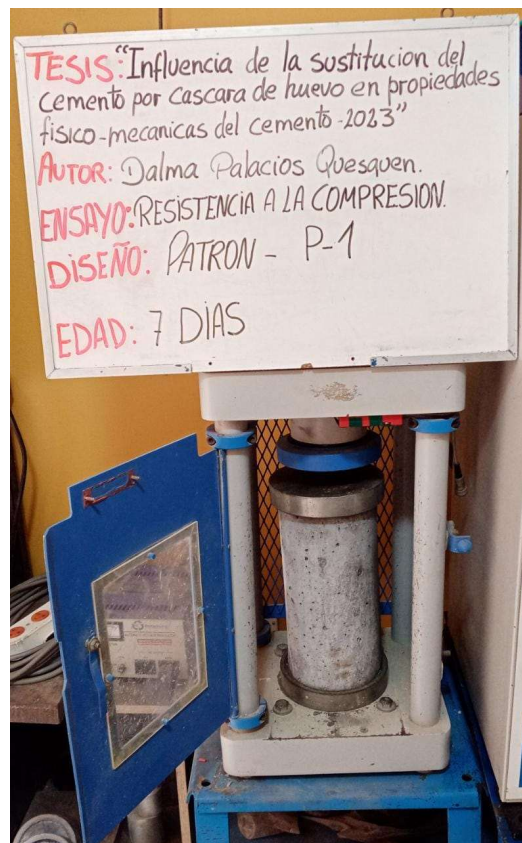 TESIS: "Influencia de la sustitucion del
cemento por cascara de huevo en propiedades
fisico-mecanicas del cemento - 2023"
AUTOR: Dalma Palacios Quesquen.
ENSAYO: RESISTENCIA A LA COMPRESION.
DISEÑO: PATRON - P-1
EDAD: 7 DIAS